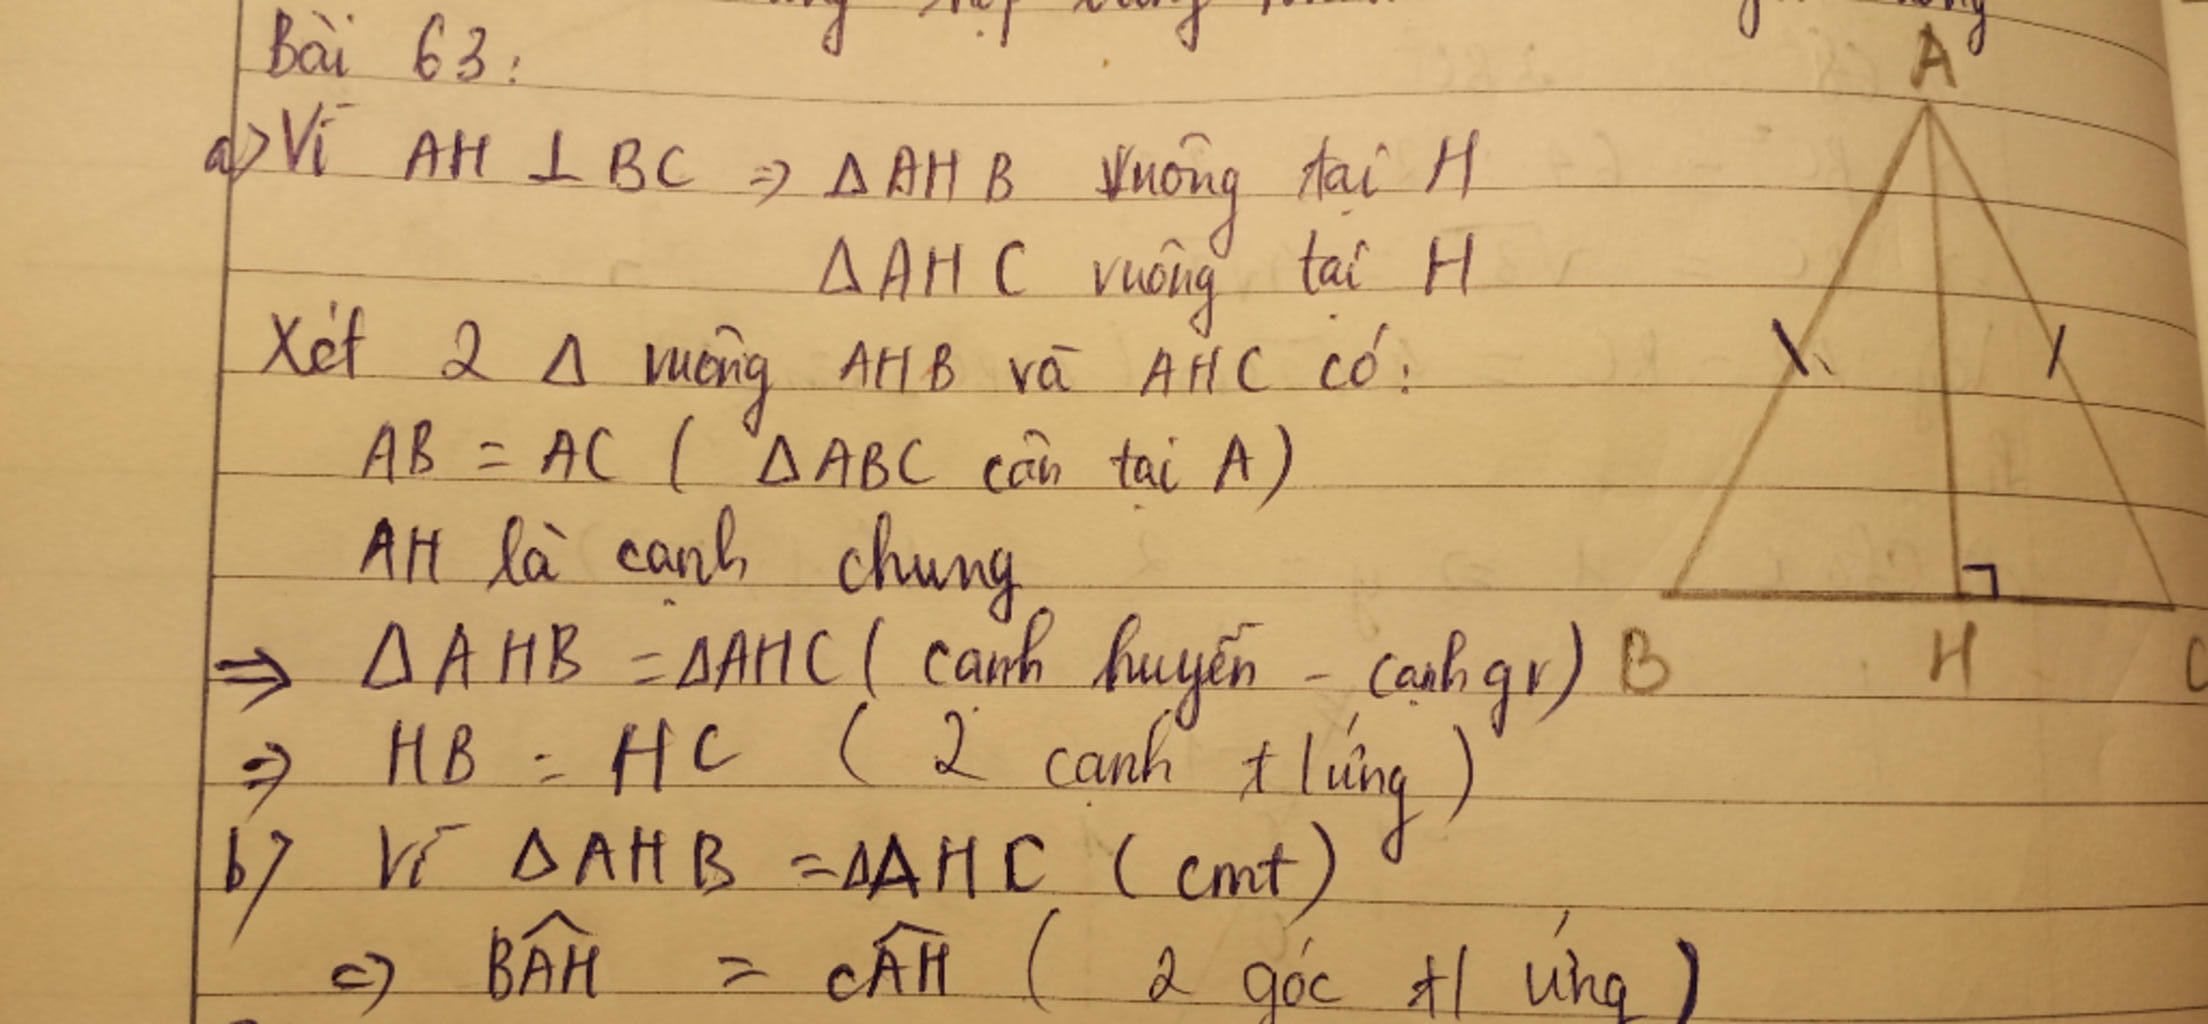 Bài 63:
a) Vì AH ⊥ BC => Δ AHB vuông tại H
Δ AHC vuông tại H
Xét 2 Δ vuông AHB và AHC có:
AB = AC ( ΔABC cân tại A)
AH là cạnh chung
=> Δ AHB = ΔAHC ( cạnh huyền - cạnh gv)
=> HB = HC ( 2 cạnh t/ứng )
b) Vì Δ AHB = ΔAHC ( cmt)
=> BÂH = CÂH ( 2 góc t/ ứng )
A
B H C